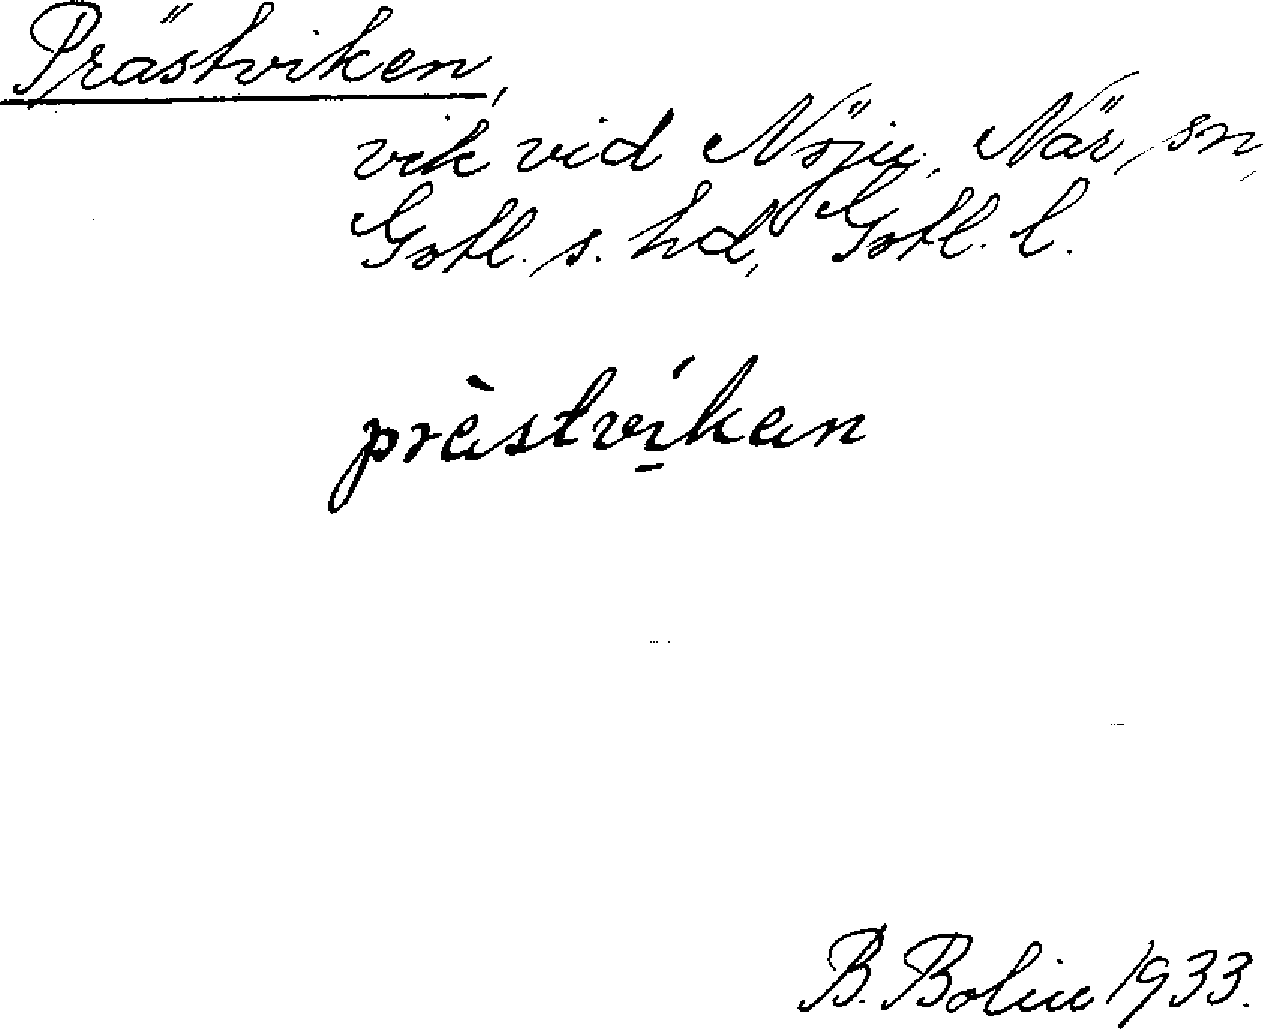 Prästviken,
vik vid Nöju, När sn,
Gotl. s. hd, Gotl. l.
prὲstvíkan
B. Bolin 1933.